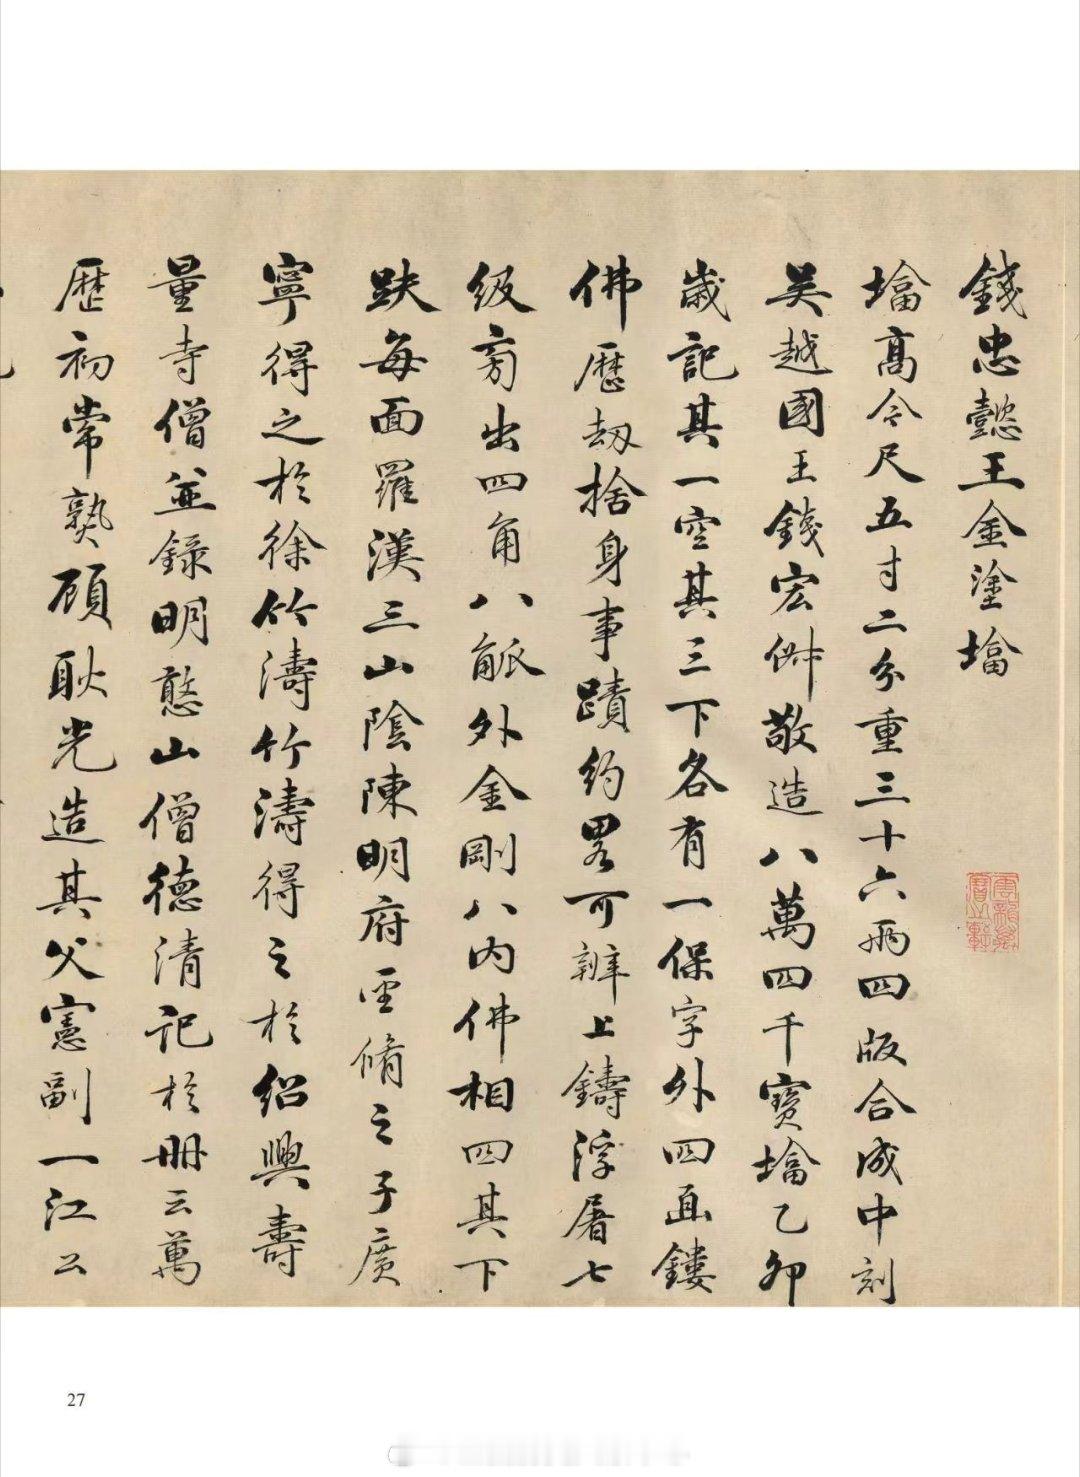 錢忠懿王金塗墖
墖高今尺五寸二分重三十六兩四版合成中刻
吴越國王錢宏俶敬造八萬四千寳墖乙卯
歲記其一空其三下各有一保字外四面鏤
佛歷劫捨身事蹟約畧可辨上鑄浮屠七
級旁出四角八觚外金剛八内佛相四其下
趺每面羅漢三山陰陳明府重脩之子廣
寧得之於徐竹濤竹濤得之於紹興壽
量寺僧並録明憨山僧德清記於冊云萬
歷初常熟顧耿光造其父憲副一江公
27